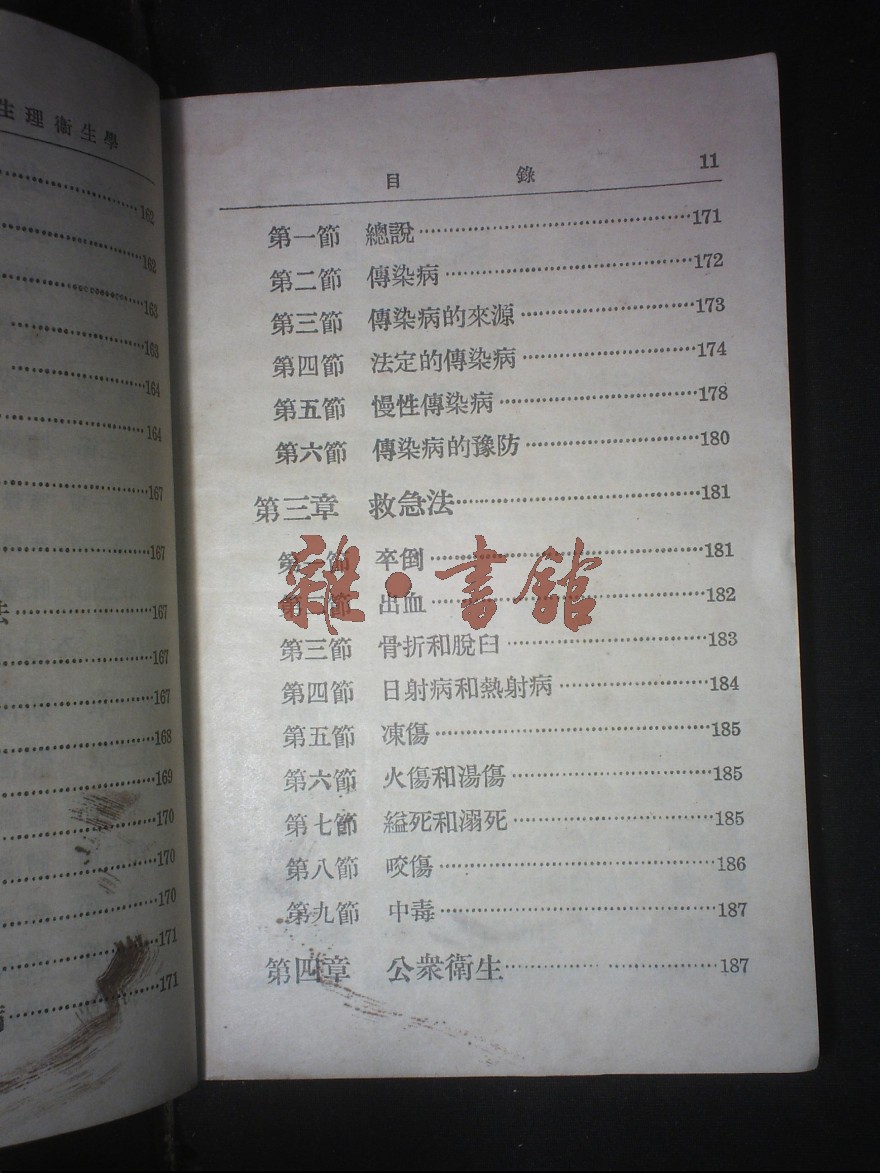 生理衛生學
162
162
163
163
164
164
167
167
法 167
167
167
168
169
170
170
170
171
171
目錄 11
第一節 總說 171
第二節 傳染病 172
第三節 傳染病的來源 173
第四節 法定的傳染病 174
第五節 慢性傳染病 178
第六節 傳染病的豫防 180
第三章 救急法 181
第一節 卒倒 181
第二節 出血 182
第三節 骨折和脫臼 183
第四節 日射病和熱射病 184
第五節 凍傷 185
第六節 火傷和湯傷 185
第七節 縊死和溺死 185
第八節 咬傷 186
第九節 中毒 187
第四章 公衆衛生 187
雜·書館